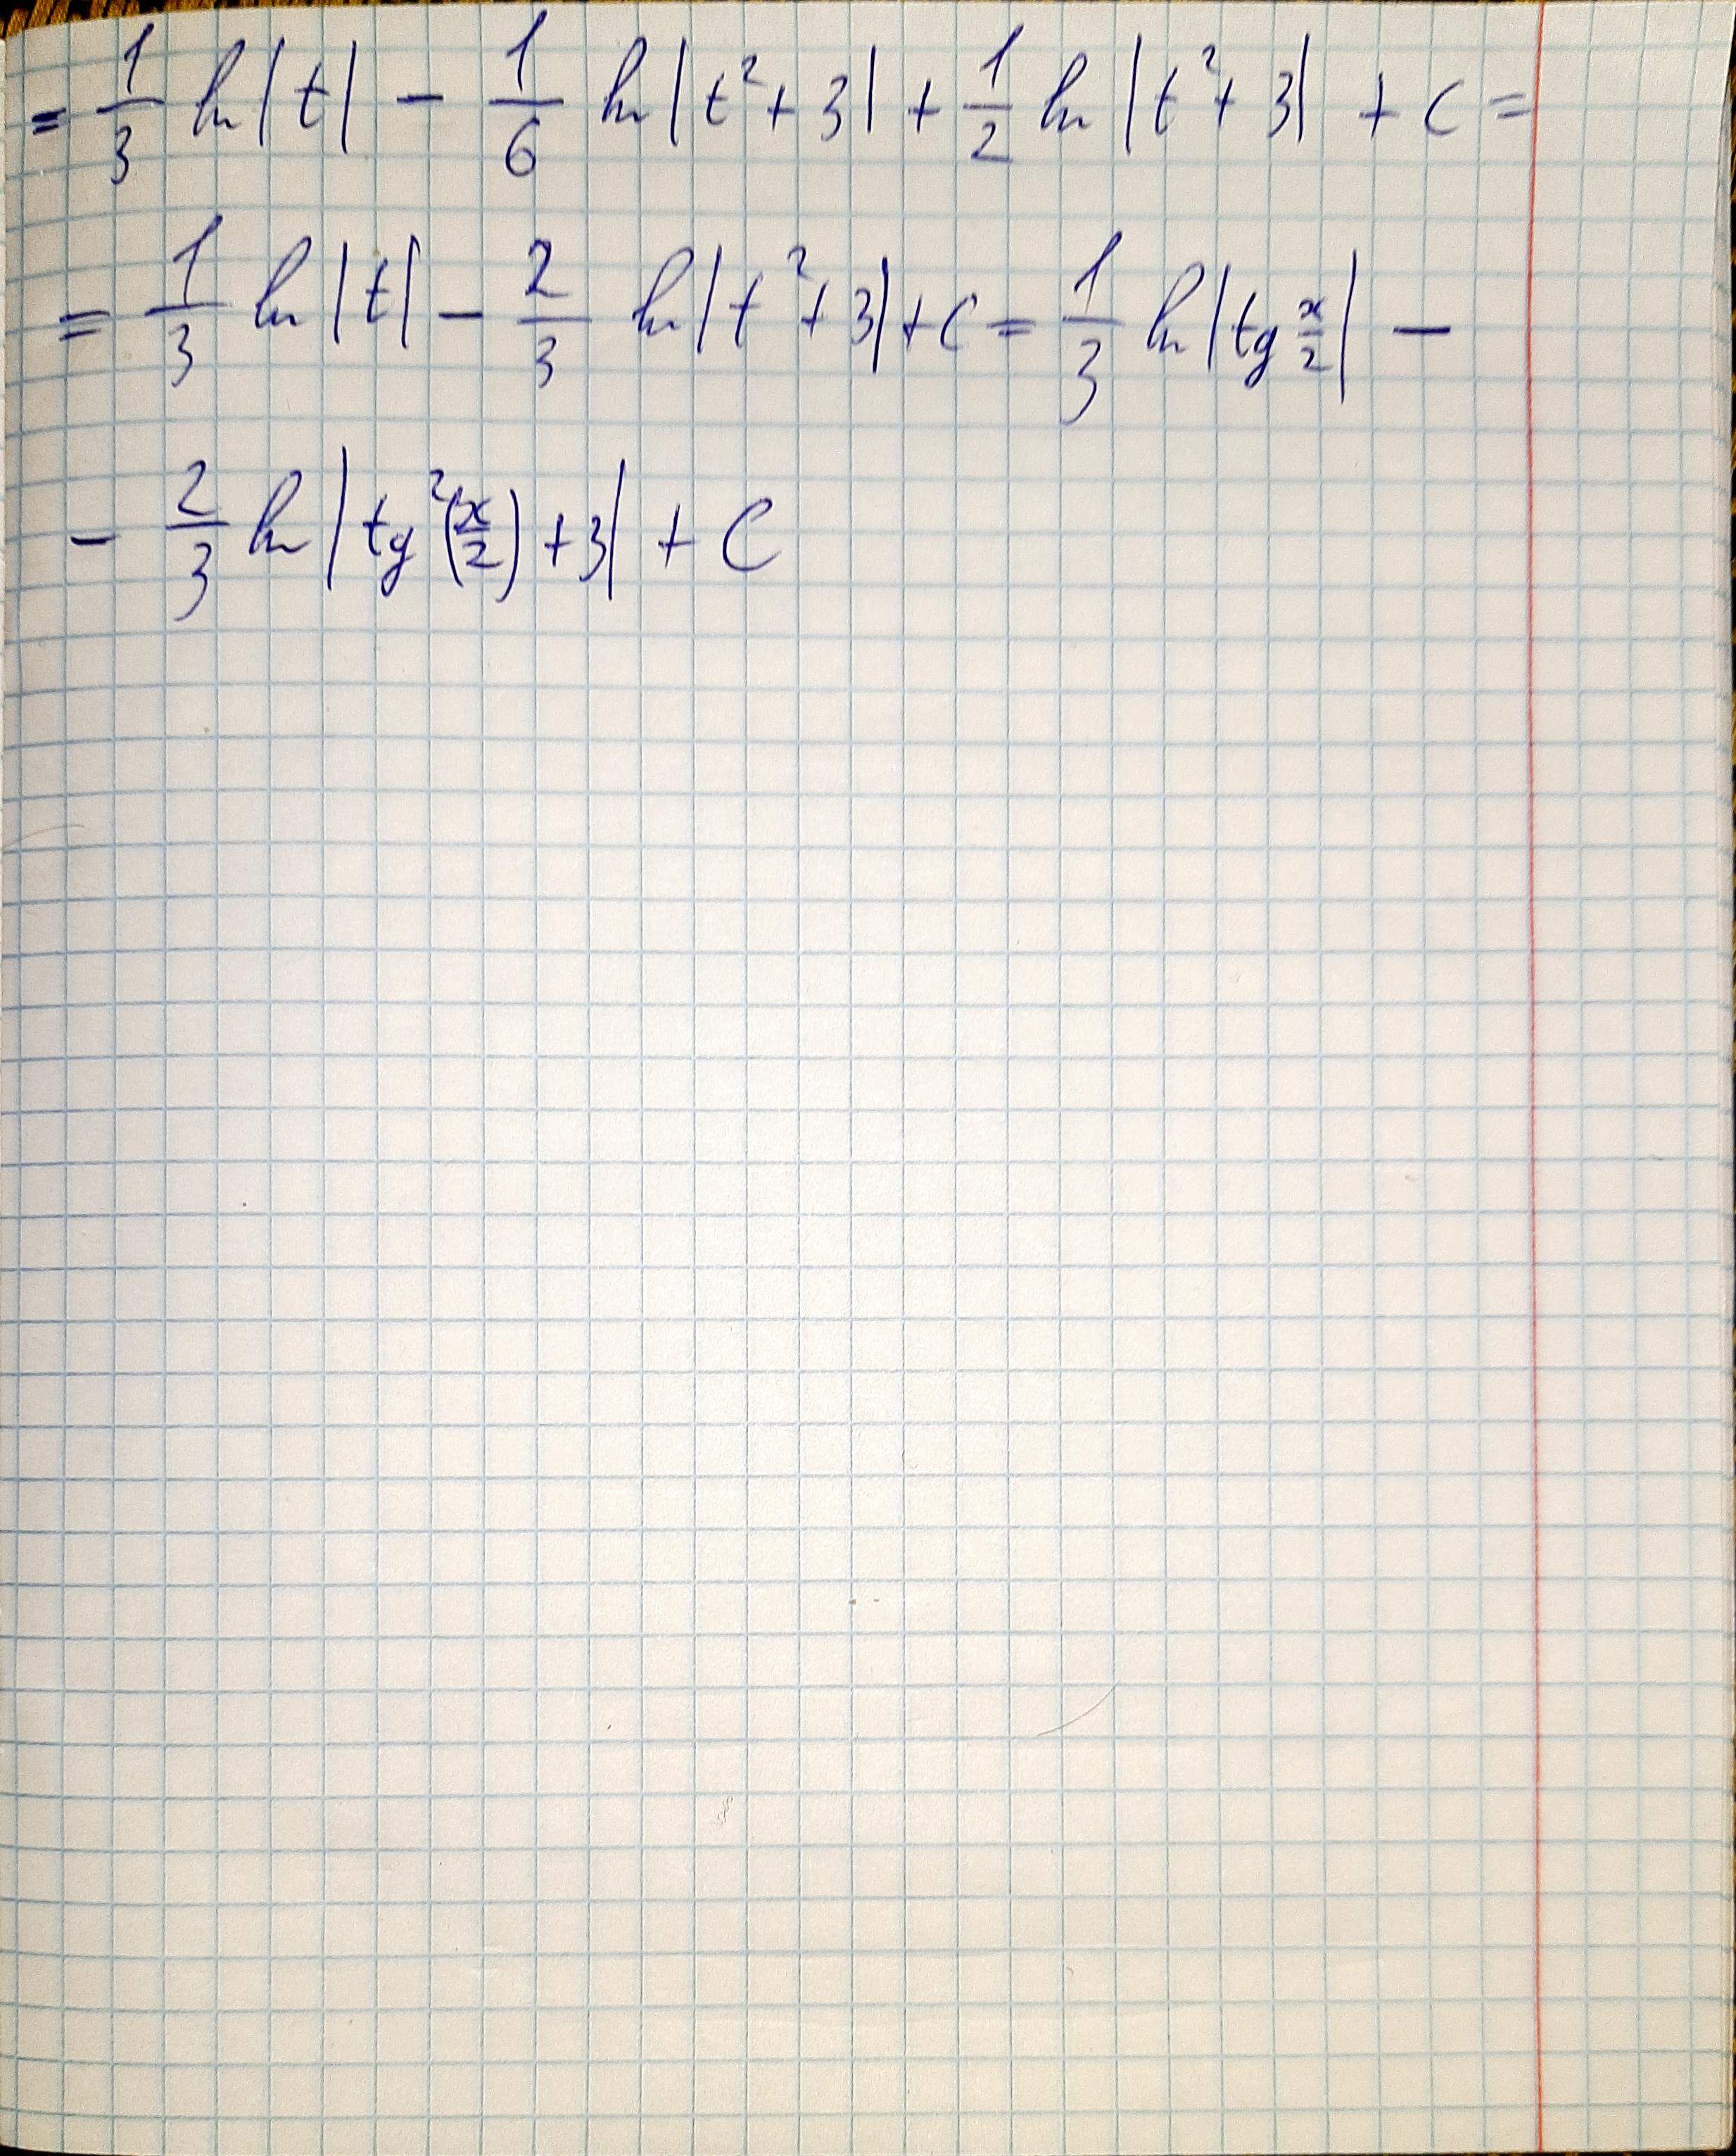 = 1/3 ln|t| - 1/6 ln|t² + 3| + 1/2 ln|t² + 3| + C =
= 1/3 ln|t| - 2/3 ln|t² + 3| + C = 1/3 ln|tg x/2| -
- 2/3 ln|tg²(x/2) + 3| + C